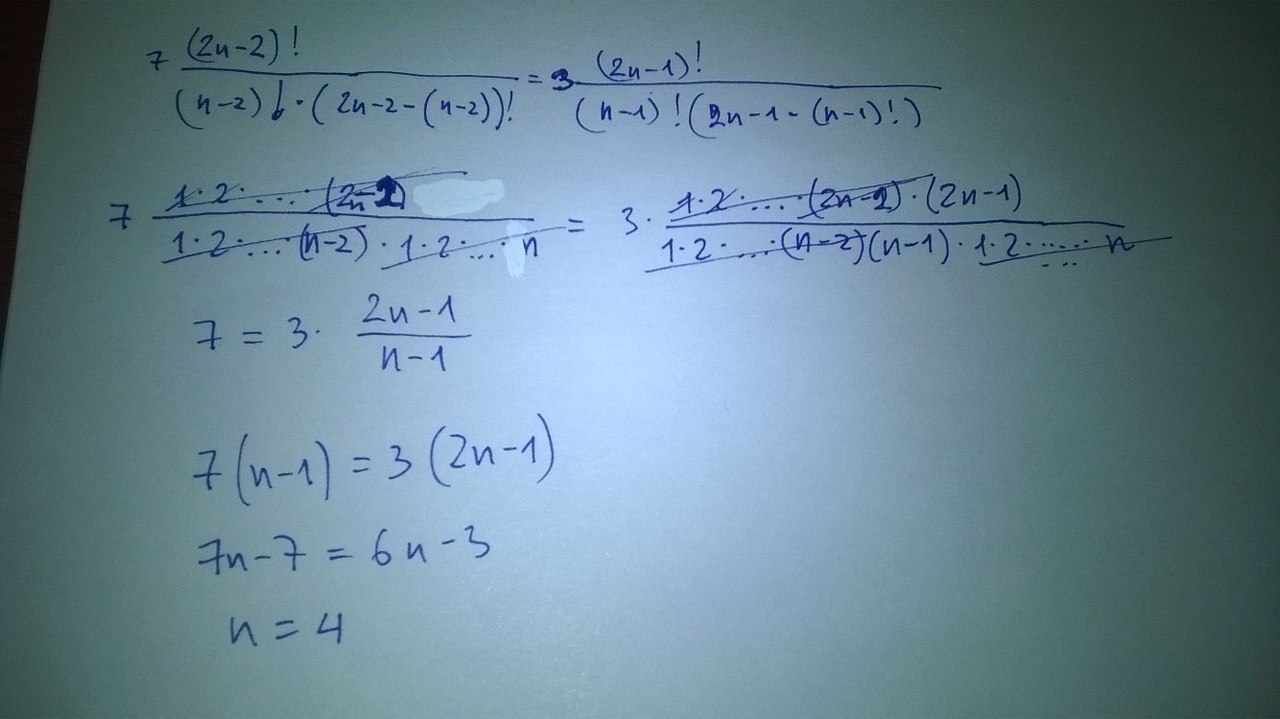 7 (2n-2)! / (n-2)! · (2n-2-(n-2))! = 3 (2n-1)! / (n-1)! (2n-1-(n-1)!)
7 1·2·...·(2n-2) / 1·2·...·(n-2)·1·2·...n = 3· 1·2·...·(2n-2)·(2n-1) / 1·2·...·(n-2)(n-1)·1·2·......n
7 = 3· 2n-1 / n-1
7(n-1) = 3(2n-1)
7n-7 = 6n-3
n = 4